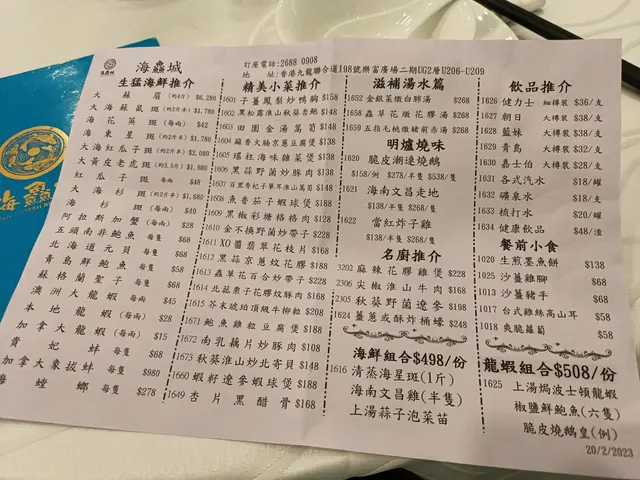 海鱻城
訂座電話:2688 0908
地 址:香港九龍聯合道198號樂富廣場二期UG2層U206-U209
生猛海鮮推介
大蘇眉(約4斤) $6,280
大海蘇鼠斑(約2斤半) $1,780
海花英斑(每兩) $42
東星斑(約2斤半) $1,780
大海紅瓜子斑(約2斤) $2,080
大黃皮老虎斑(約3.5斤) $1,980
紅瓜子斑 每兩
大海杉斑(約2斤半) $1,680
海杉斑(每兩) $40
阿拉斯加蟹(每兩) $28
五頭南非鮑魚 每隻 $68
北海道元貝 每隻 $48
青島鮮鮑魚 每隻 $58
蘇格蘭聖子 每隻 $68
澳洲大龍蝦 每兩 $45
本地龍蝦(每兩) $28
加拿大龍蝦(每兩) $15
貴妃蚌 每隻 $68
加拿大象拔蚌 每隻 $980
海螳螂 每隻 $278
精美小菜推介
1601 子薑鳳梨炒鴨胸 $158
1602 黑松露淮山秋葵杏鮑 $148
1603 田園金湯萬筍 $148
1604 麻香大腸京蔥豆腐煲 $138
1605 瑤柱海味雜菜煲 $138
1606 黑蒜野菌炒豚肉 $138
1607 百里香杞子單耳淮山萬筍 $148
1608 魚香茄子蝦球煲 $138
1609 黑椒彩糖格格肉 $128
1610 金不換野菌炒帶子 $228
1611 XO醬翡翠花枝片 $168
1612 黑蒜京蔥炆花膠 $188
1613 蟲草花百合炒帶子 $228
1614 北菇栗子花膠炆豚肉 $168
1615 芥末琥珀頂級牛柳粒 $208
1671 鮑魚雞粒豆腐煲 $188
1672 南乳藕片炒豚肉 $108
1673 秋葵淮山炒北寄貝 $148
1660 蝦籽遼參蝦球煲 $188
1649 杏片黑醋骨 $168
滋補湯水篇
1652 金銀菜燉白肺湯 $268
1658 蟲草花燉花膠湯 $268
1659 五指毛桃燉豬前湯 $268
明爐燒味
1620 脆皮潮連燒鵝
$158/例 $278/半隻 $538/隻
1621 海南文昌走地
$138/半隻 $268/隻
1622 當紅炸子雞
$138/半隻 $268/隻
名廚推介
3202 麻辣花膠雞煲 $228
2306 尖椒淮山牛肉 $168
2305 秋葵野菌遼參 $198
1624 薑蔥或酥炸桶蠔 $248
海鮮組合$498/份
1616 清蒸海星斑(1斤)
海南文昌雞(半隻)
上湯蒜子泡菜苗
飲品推介
1626 健力士 細樽裝 $36/支
1627 朝日 大樽裝 $38/支
1628 藍妹 大樽裝 $38/支
1629 青島 大樽裝 $32/支
1630 嘉士伯 大樽裝 $35/支
1631 各式汽水 $18/罐
1632 礦泉水 $18/支
1633 梳打水 $20/罐
1634 健康飲品 $48/渣
餐前小食
1020 生煎墨魚餅 $138
1025 沙薑雞腳 $68
1013 沙薑豬手 $68
1017 台式雞絲高山耳 $58
1018 爽脆蘿蔔 $58
龍蝦組合$508/份
1625 上湯焗波士頓龍蝦
椒鹽鮮鮑魚(六隻)
脆皮燒鵝皇(例)
20/2/2023